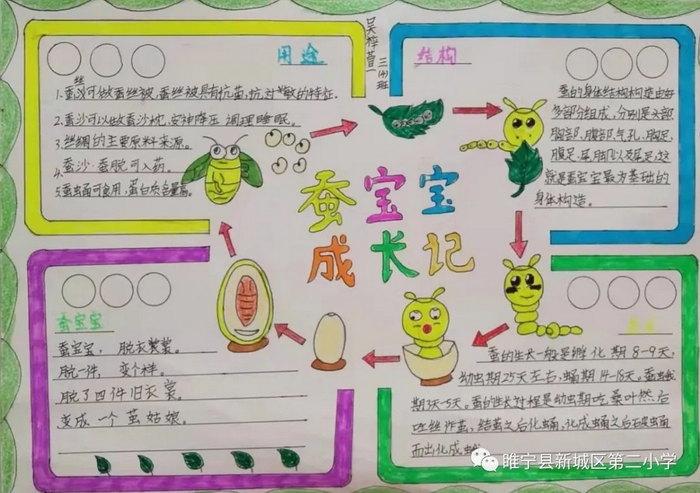 吴梓萱
三(4)班
用途
丝
1.蚕沙可做蚕丝被,蚕丝被具有抗菌,抗过敏的特征.
2.蚕沙可以做蚕沙枕,安神降压 调理睡眠。
3.丝绸的主要原料来源。
4.蚕沙、蚕脱可入药。
5.蚕蛹可食用,蛋白质含量高。
结构
蚕的身体结构构造由好
多部分组成,分别是头部
胸部、腹部气孔、胸足、
腹足、尾脚以及尾足,这
就是蚕宝宝最为基础的
身体构造。
蚕宝宝
成长记
蚕宝宝
蚕宝宝,脱衣裳。
脱一件,变个样。
脱了四件旧衣裳
变成一个茧姑娘。
蚕的生长一般是孵化期8-9天,
幼虫期25天左右,蛹期14-18天。蚕虫成
期3天-5天。蚕的生长过程是幼虫期吃桑叶然后
吐丝作茧,结茧之后化蛹,化成蛹之后
而出化成蛾
睢宁县新城区第二小学